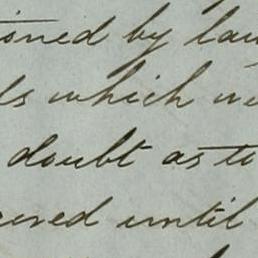 ioned by law
ls which we
doubt as to
erved until